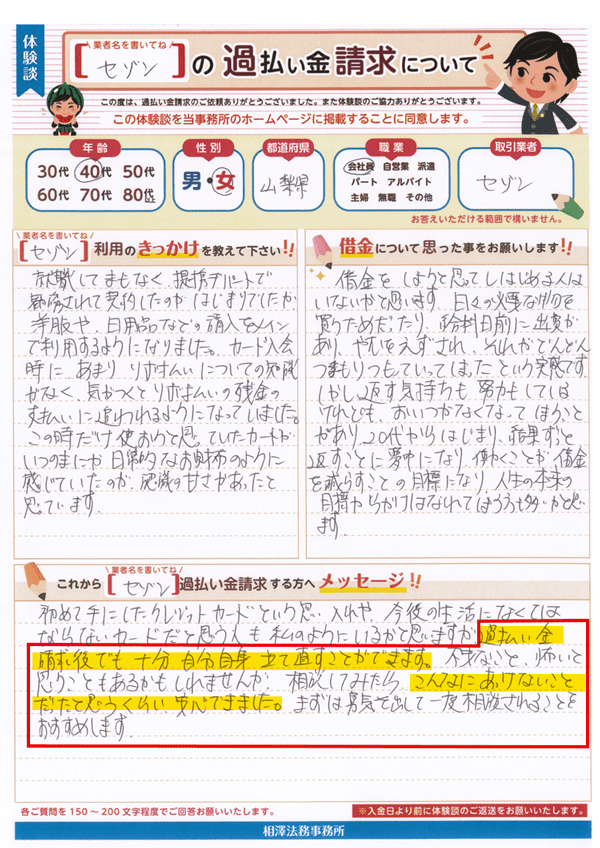 体験談
業者名を書いてね
[セゾン]の過払い金請求について
この度は、過払い金請求のご依頼ありがとうございました。また体験談のご協力ありがとうございます。
この体験談を当事務所のホームページに掲載することに同意します。
年齢
30代 40代 50代
60代 70代 80代以上
性別
男・女
都道府県
山梨県
職業
会社員 自営業 派遣
パート アルバイト
主婦 無職 その他
取引業者
セゾン
お答えいただける範囲で構いません。
業者名を書いてね
[セゾン]利用のきっかけを教えて下さい!!
就職してまもなく、提携デパートで
勧誘されて契約したのがはじまりでしたが
洋服や、日用品などの購入をメイン
で利用するようになりました。カード入会
時に あまり リボ払いについての知識
がなく、気がつくとリボ払いの残金の
支払いに追われるようになっていました。
この時だけ使おうと思っていたカードが
いつのまにか日常的なお財布のように
感じていたのが、認識の甘さがあったと
思っています。
借金について思った事をお願いします!!
借金をしようと思ってしはじめる人は
いないかと思います。日々の必要な物を
買うためだったり、給料日前に出費が
あり、やむをえずされ、それがどんどん
つもりつもっていってしまったという実感です。
しかし、返す気持ちも努力もしている
けれども、おいつかなくなってしまうこと
があり、20代からはじまり、結果ずっと
返すことに夢中になり、働くことが、借金
を減らすことの目標になり、人生の本来の
目標からかけはなれてしまう方も多いかと思い
ます。
業者名を書いてね
これから[セゾン]過払い金請求する方へメッセージ!!
初めて手にしたクレジットカードという思い入れや、今後の生活になくては
ならないカードだと思う人も私のようにいるかと思いますが、過払い金
請求後でも十分、自分自身 立て直すことができます。不安なこと、怖いと
思うこともあるかもしれませんが、相談してみたら、こんなにあっけないこと
だったと思うくらい安心できました。まずは勇気を出して一度相談されることを
おすすめします。
各ご質問を150〜200文字程度でご回答お願いいたします。
※入金日より前に体験談のご返送をお願いいたします。
相澤法務事務所